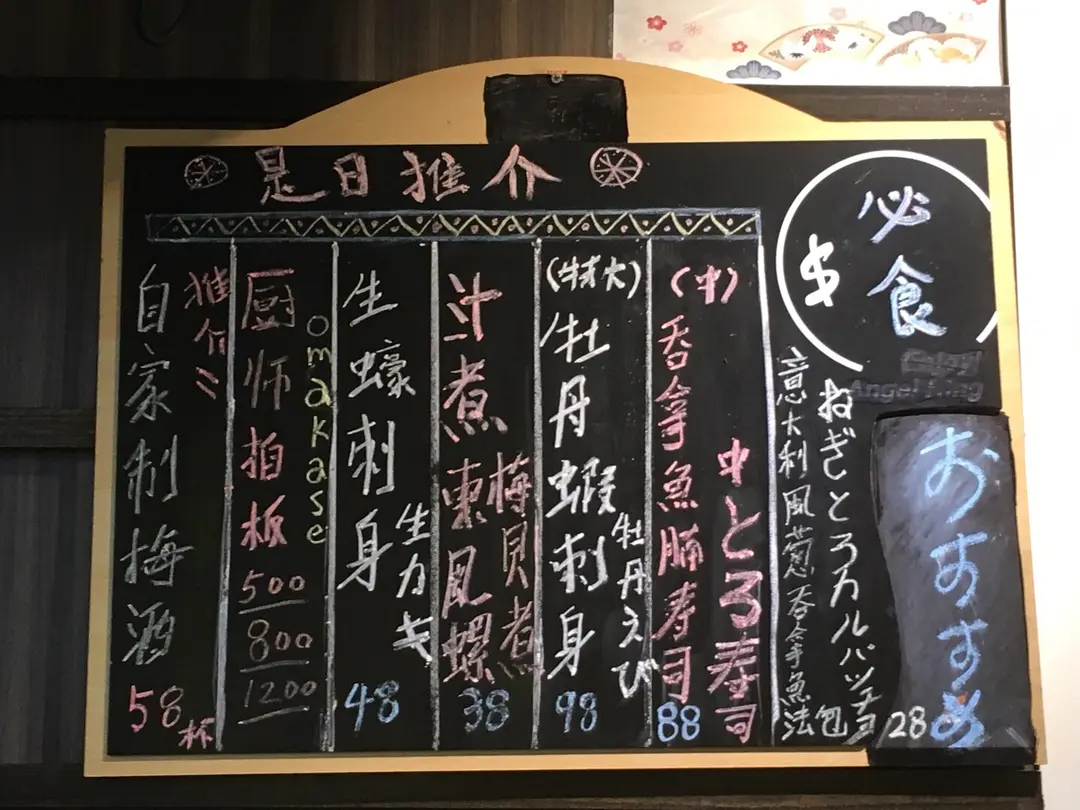 是日推介
必食
$
おすすめ
ねぎとろカルパッチョ
意大利風葱吞拿魚法包 28
(中)
吞拿魚腩寿司
中とろ寿司
88
(特大)
牡丹蝦刺身
牡丹えび
98
汁煮東風螺
梅貝煮
38
生蠔刺身
生カキ
48
厨师拍板
omakase
500
800
1200
推介
自家制梅酒
58杯